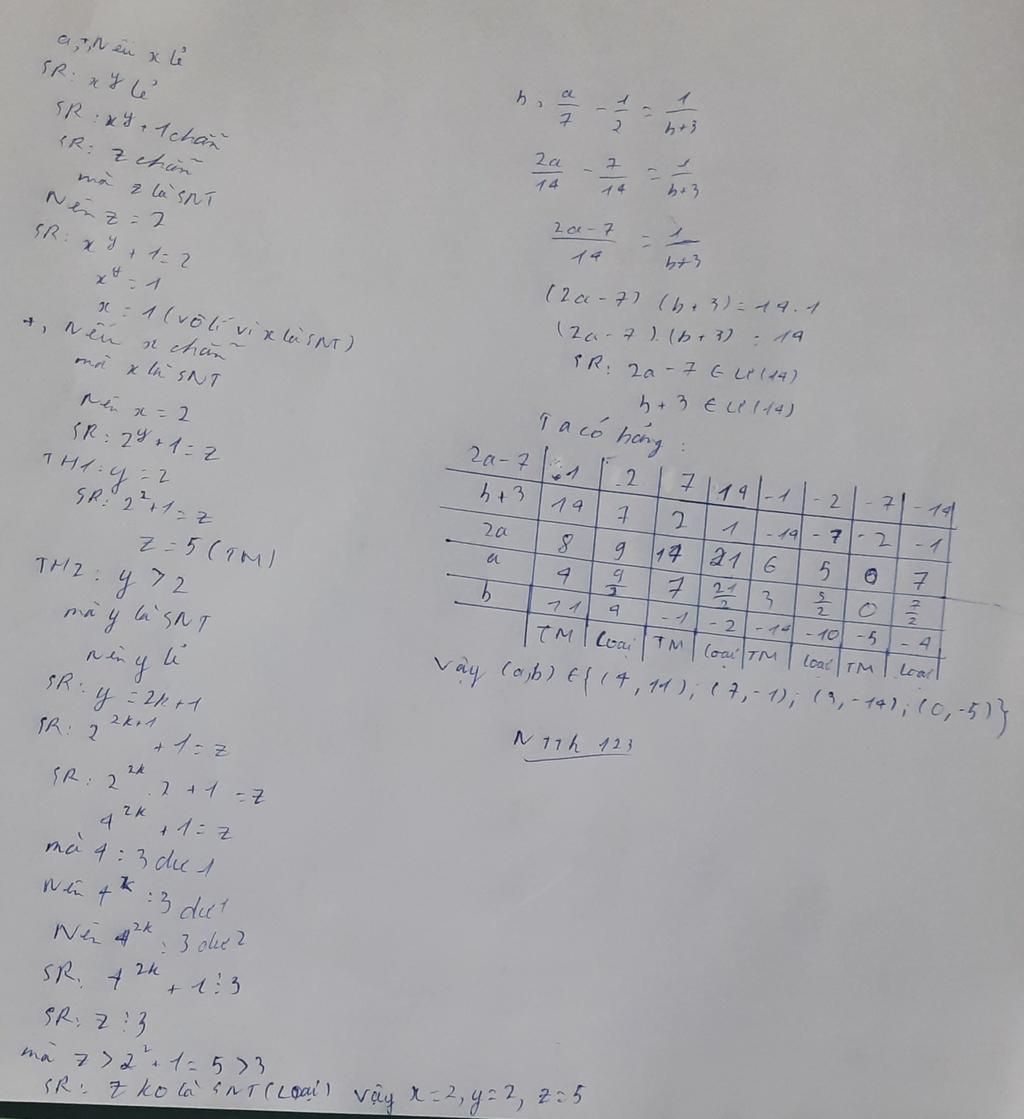 a, +, Nếu x lẻ
SR: x^y lẻ
SR: x^y + 1 chẵn
SR: z chẵn
mà z là SNT
Nên z = 2
SR: x^y + 1 = 2
x^y = 1
x = 1 (vô lí vì x là SNT)
+, Nếu x chẵn
mà x là SNT
Nên x = 2
SR: 2^y + 1 = z
TH1: y = 2
SR: 2^2 + 1 = z
z = 5 (TM)
TH2: y > 2
mà y là SNT
Nên y lẻ
SR: y = 2k+1
SR: 2^{2k+1} + 1 = z
SR: 2^{2k} . 2 + 1 = z
4^{2k} + 1 = z
mà 4 : 3 dư 1
Nên 4^k : 3 dư 1
Nên 4^{2k} : 3 dư 2
SR: 4^{2k} + 1 ⋮ 3
SR: z ⋮ 3
mà z > 2^2 + 1 = 5 > 3
SR: z ko là SNT (Loại) vậy x = 2, y = 2, z = 5
b, a/7 - 1/2 = 1/(b+3)
2a/14 - 7/14 = 1/(b+3)
(2a-7)/14 = 1/(b+3)
(2a-7) (b+3) = 14.1
(2a-7).(b+3) = 14
SR: 2a-7 ∈ Ư(14)
b+3 ∈ Ư(14)
Ta có bảng:
2a-7 | 1 | 2 | 7 | 14 | -1 | -2 | -7 | -14
b+3 | 14 | 7 | 2 | 1 | -14 | -7 | -2 | -1
2a | 8 | 9 | 14 | 21 | 6 | 5 | 0 | 7
a | 4 | 9/2 | 7 | 21/2 | 3 | 5/2 | 0 | 7/2
b | 11 | 4 | -1 | -2 | -14 | -10 | -5 | -4
TM | Loại | TM | Loại | TM | Loại | TM | Loại
Vậy (a,b) ∈ {(4, 11); (7, -1); (3, -14); (0, -5)}
NTTh 123